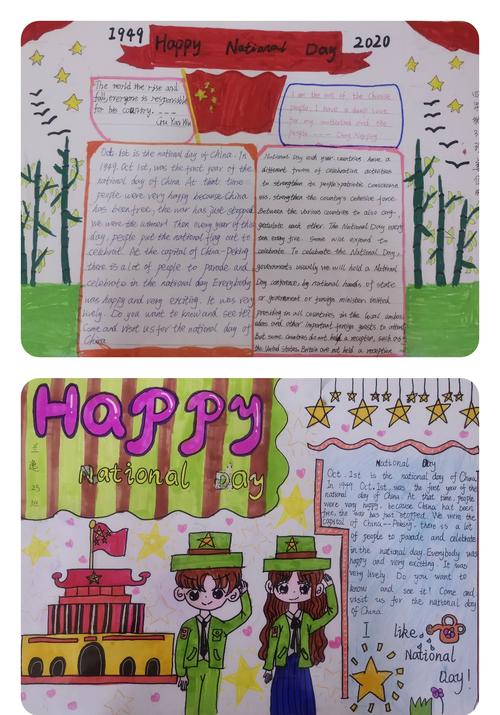 1949
Happy National Day
2020
The world the rise and
fall, everyone is responsible
for his country.
I am the son of the Chinese
people. I have a deep love
for my motherland and the
people
Oct. 1st is the national day of China. In
1949. Oct 1st, was the first year of the
national day of China. At that time
people were very happy because China
has been free, the war has just stopped
We were the winner! Then every year of this
day, people put the national flag out to
celebrate. At the capital of China-Peking
there is a lot of people to parade and
celebrate in the national day Everybody
was happy and very exciting. It was very
lively. Do you want to know and see it!
Come and visit us for the national day of
China
National Day each year countries have a
different forms of celebration activities
to strengthen its people's patriotic
was, strengthen the country's cohesive force.
Between the various countries to also
each other. The National Day every
ten every five. Some will expand to
celebrate. To celebrate the National Day,
governments usually we will hold a National
Day conference, by national heads of state
or government or foreign minister
presiding in all countries in the local
and other important foreign guests to attend
But some countries do not hold a reception, such as
the United States, Britain are not held a reception
Happy
National Day
National Day
Oct. 1st is the national day of China
In 1949. Oct. 1st, was the first year of the
national day of China. At that time people
were very happy, because China has been
free, the war has just stopped. We were the
capital of China--Peking, there is a lot
of people to parade and celebrate
in the national day. Everybody was
happy and very exciting. It was
very lively. Do you want to
know and see it! Come and
visit us for the national day
of China
I like
National
Day!